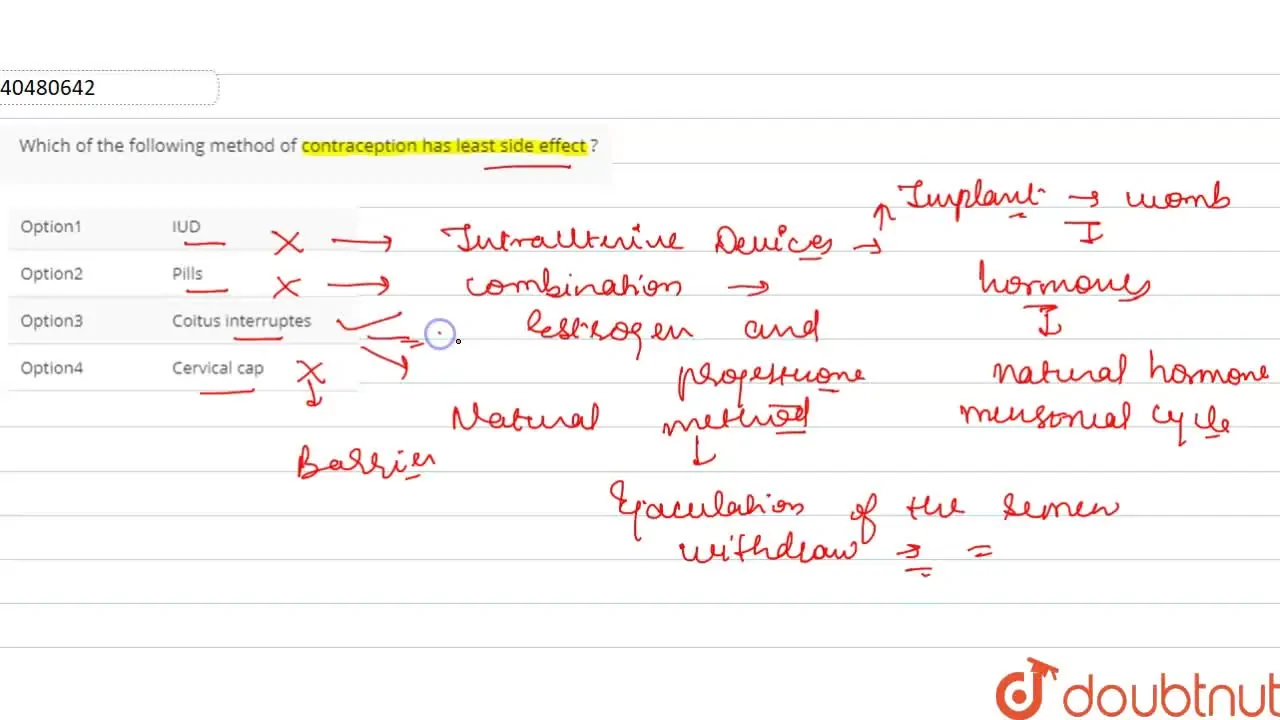 40480642
Which of the following method of contraception has least side effect ?
Implant → womb
Option1 IUD X → Intrauterine Devices →
Option2 Pills X → combination → hormones
Option3 Coitus interruptes Estrogen and
Option4 Cervical cap X progesterone natural hormone
Natural method mensorial cycle
Barrier
Ejaculation of the semen
withdraw → =
doubtnut